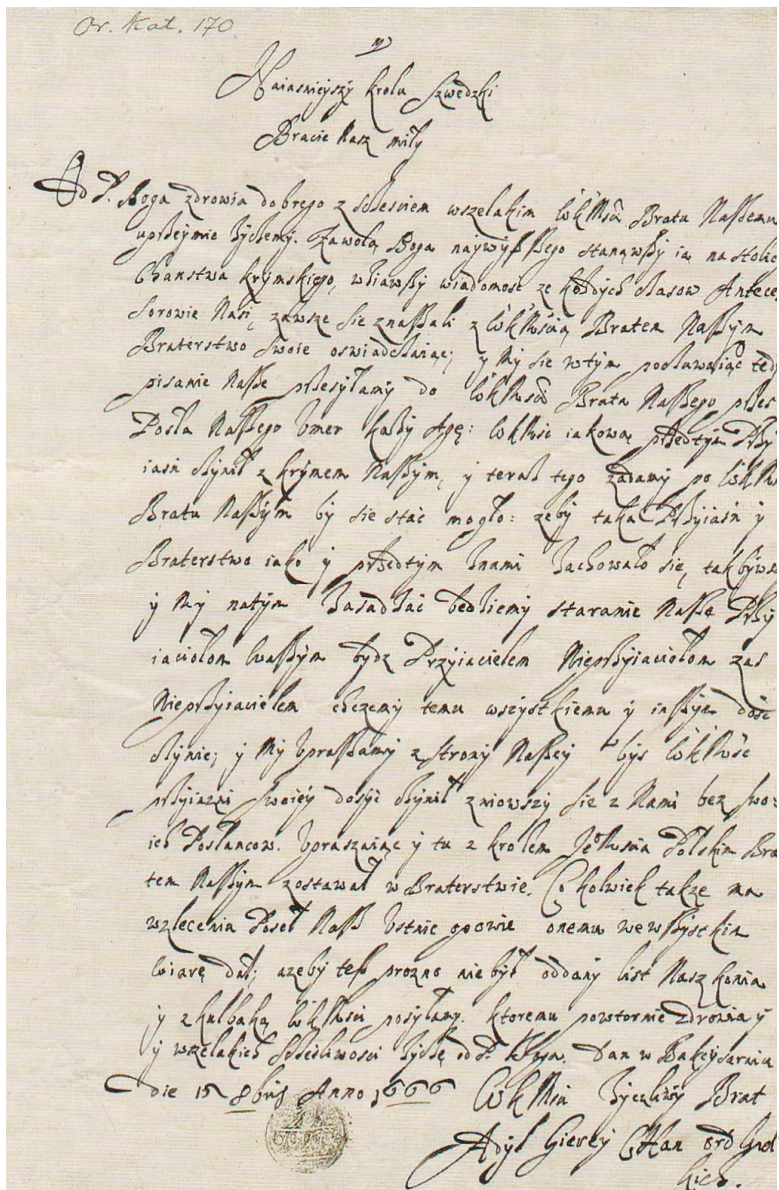 Or. Kat. 170.
Naiasnieyszy krolu Szwedzki
Bracie Nasz miły
Od P. Boga zdrowia dobrego z sczesciem wszelakim WKMsci Bratu Naszemu
uprzeymie zyczemy. Zawolą Boga naywyszszego stanąwszy ia na stolic
Chanstwa krymskiego, wziawszy wiadomosc ze kozdych czasow Antece
sorowie Nasi, zawsze sie znaszali z WKMscią Bratem Naszym
Braterstwo swoie oswiadczaiąc; y My sie wtym poczuwaiąc tedy
pisanie Nasze przesyłamy do WKMsci Brata Naszego przez
Posła Naszego Umer Kazy Agę: WKMsc iakową przedtym Przy
iazń czynił z krymem Naszym, y teraz tego ządamy po WKMsci
Bratu Naszym by sie stac mogło: zeby taka Przyiazń y
Braterstwo iako y przedtym znami zachowało się, tak
y My natym zasadzac bedziemy staranie Nasze Przy
iaciołom Waszym bydz Przyiacielem Nieprzyiaciołom zas
Nieprzyiacielem chczemy temu wszystkiemu y inszym dosc
czynic; y My upraszamy z strony Naszey bys WKMsc
przyiazni swoiey dosyc czynił zniowszy sie z Nami bez swo
ich Posłancow. Upraszaiąc y tu z krolem JeoMscia Polskim Bra
tem Naszym zostawał w Braterstwie. Co kolwiek takze ma
wzlecenia Poseł Nasz ustnie opowie onemu wewszystkim
wiarę dał; azeby tesz prozno nie był oddany list Nasz konia
y z kulbaką WKMsci posyłamy. ktoremu powtornie zdrowia y
y wszelakich sczesliwosci zyczę od P. Dan w Bakcysaraiu
die 15 8bris Anno 1666 WKMsci zyczliwy Brat
Adyl Gierey Chan ord
kich.